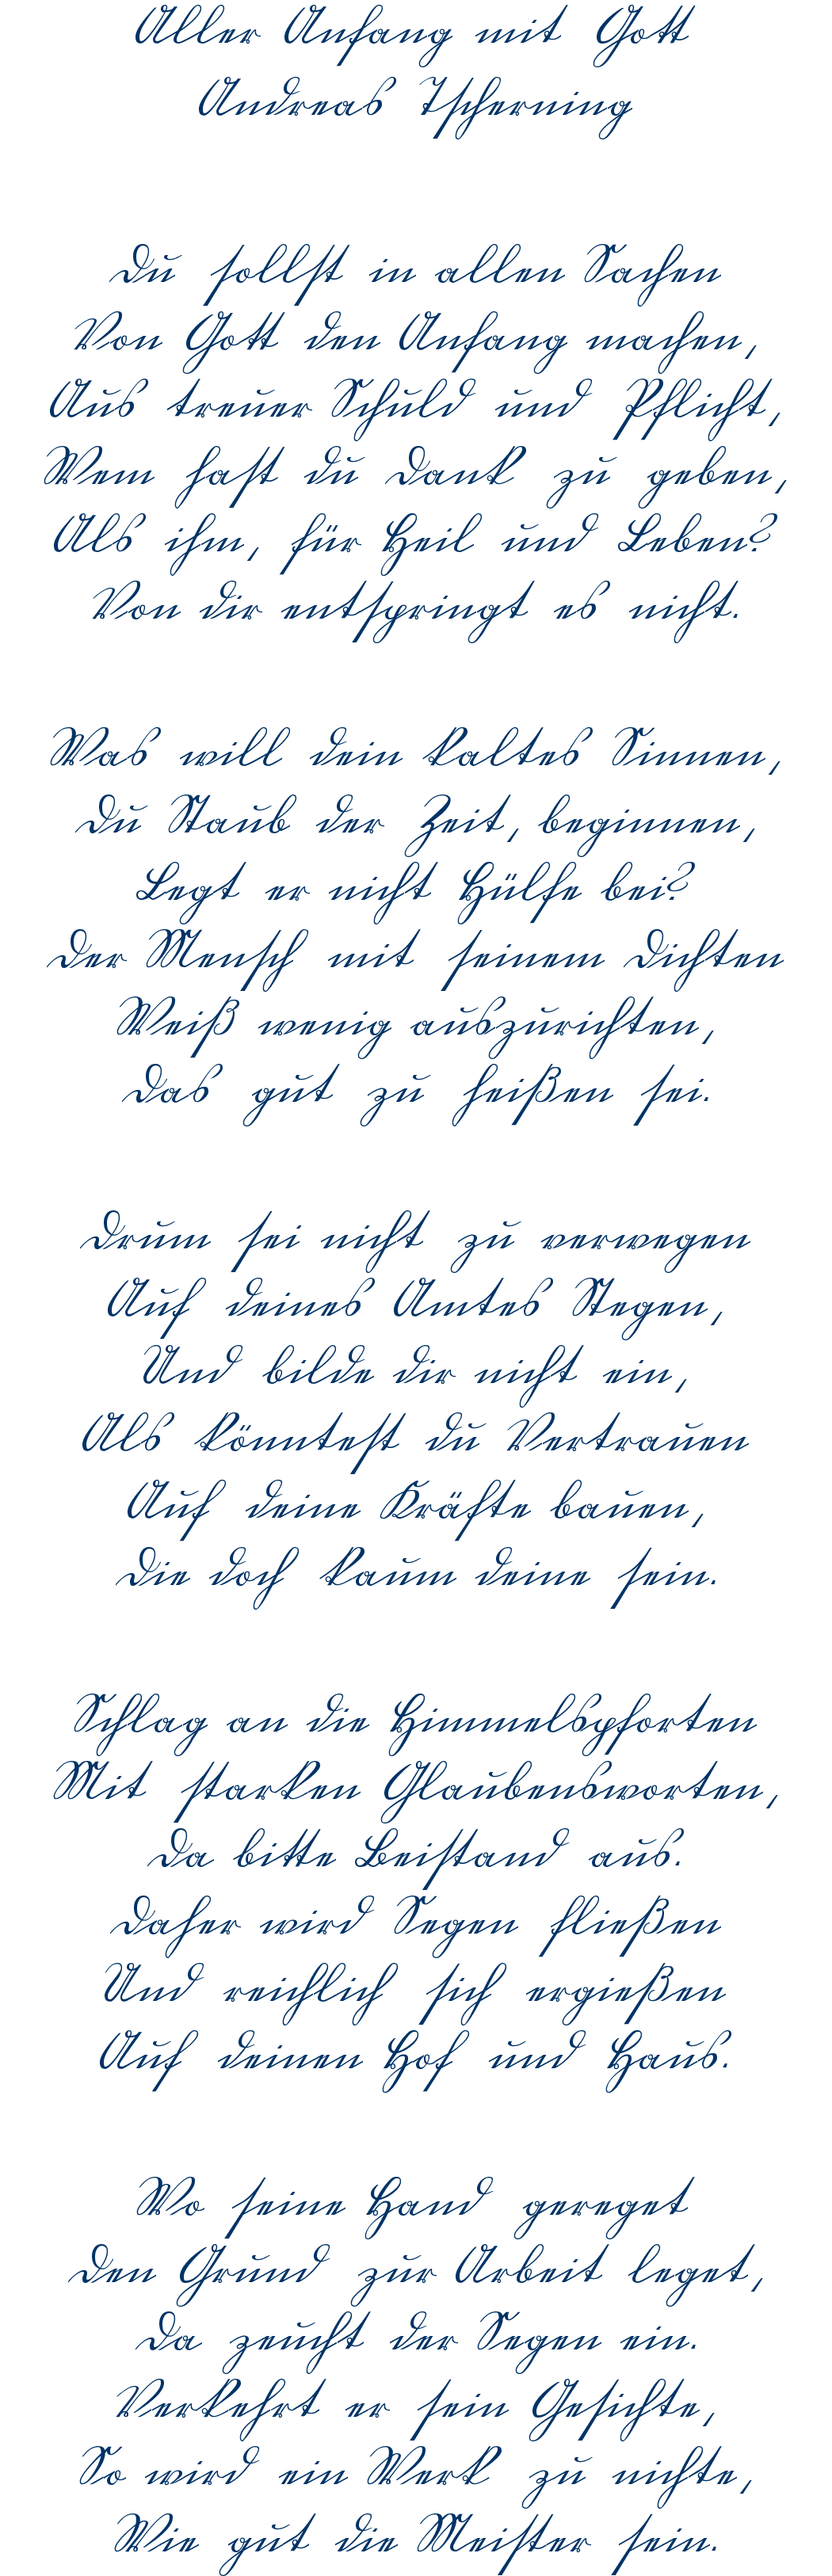 Aller Anfang mit Gott
Andreas Tscherning
Du sollst in allen Sachen
Von Gott den Anfang machen,
Aus treuer Schuld und Pflicht,
Wem hast du Dank zu geben,
Als ihm, für Heil und Leben?
Von dir entspringt es nicht.
Was will dein kaltes Sinnen,
Du Staub der Zeit, beginnen,
Legt er nicht Hülfe bei?
Der Mensch mit seinem Dichten
Weiß wenig auszurichten,
Das gut zu heißen sei.
Drum sei nicht zu verwegen
Auf deines Amtes Stegen,
Und bilde dir nicht ein,
Als könntest du Vertrauen
Auf deine Kräfte bauen,
Die doch kaum deine sein.
Schlag an die Himmelspforten
Mit starken Glaubensworten,
Da bitte Beistand aus.
Daher wird Segen fließen
Und reichlich sich ergießen
Auf deinen Hof und Haus.
Wo seine Hand gereget
Den Grund zur Arbeit leget,
Da zeucht der Segen ein.
Verkehrt er sein Gesichte,
So wird ein Werk zu nichte,
Wie gut die Meister sein.